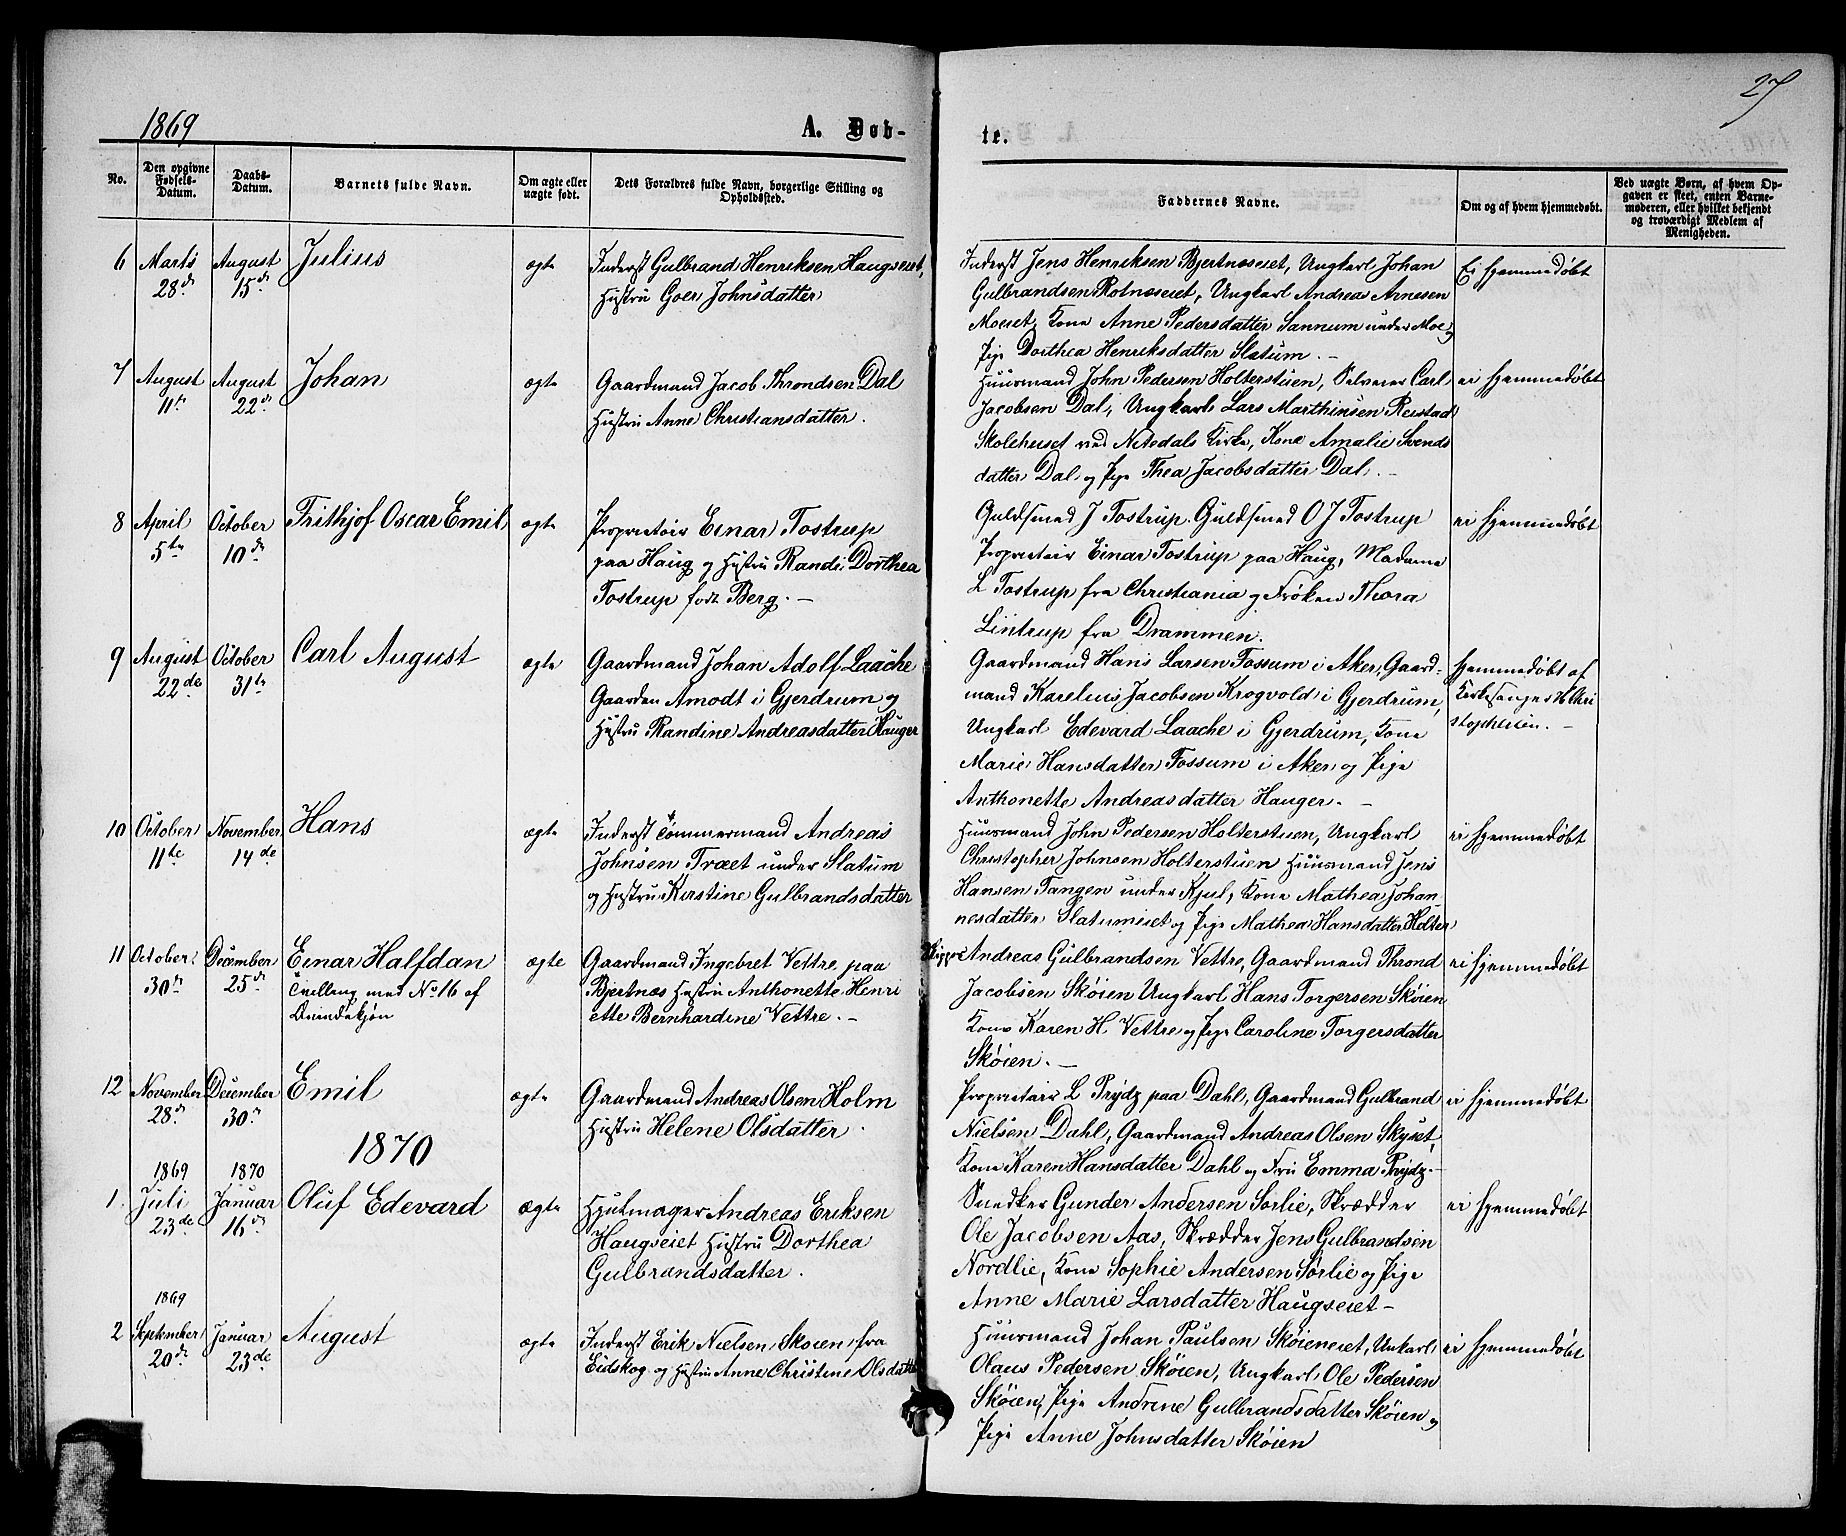 27
1869
A. Døb-
te.
No.
Den opgivne Fødsels-Datum.
Daabs-Datum.
Barnets fulde Navn.
Om ægte eller uægte født.
Dets Forældres fulde Navn, borgerlige Stilling og Opholdssted.
Faddernes Navne.
Om og af hvem hjemmedøbt.
Ved uægte Børn, af hvem Opgaven er skeet, enten Barnemoderen, eller hvilket bekjendt og troværdigt Medlem af Menigheden.
6 Marts 28de August 15de Julius ægte
Inderst Gulbrand Henriksen Haugseiet,
Hustru Goer Johnsdatter
Inderst Jens Henriksen Bjertnæseiet, Ungkarl Johan
Gulbrandsen Rotnæseiet, Ungkarl Andreas Arnesen
Moeiet, Kone Anne Pedersdatter Sannum under Moe og
Pige Dorthea Henriksdatter Slatum. –
Ei hjemmedøbt
7 August 11te August 22de Johan ægte
Gaardmand Jacob Throndsen Dal
Hustru Anne Christiansdatter.
Huusmand John Pedersen Holterstuen, Selveier Carl
Jacobsen Dal, Ungkarl Lars Marthinsen Reistad
Skolehuset ved Nitedals Kirke, Kone Amalie Svends
datter Dal og Pige Thea Jacobsdatter Dal. –
ei hjemmedøbt
8 April 5te October 10de Frithjof Oscar Emil ægte
Proprietair Einar Tostrup
paa Haug og Hustru Randi Dorthea
Tostrup født Berg. –
Guldsmed J Tostrup. Guldsmed O J Tostrup
Proprietair Einar Tostrup paa Haug, Madame
L Tostrup fra Christiania og Frøken Thora
Lintrup fra Drammen.
ei hjemmedøbt
9 August 22de October 31te Carl August ægte
Gaardmand Johan Adolf Laache
Gaarden Amodt i Gjerdrum og
Hustru Randine Andreasdatter Hauger
Gaardmand Hans Larsen Fossum i Aker, Gaard-
mand Karelius Jacobsen Krogvold i Gjerdrum,
Ungkarl Edevard Laache i Gjerdrum, Kone
Marie Hansdatter Fossum i Aker og Pige
Anthonette Andreasdatter Hauger. –
hjemmedøbt af
Kirkesanger
10 October 11te November 14de Hans ægte
Inderst Tømmermand Andreas
Johnsen Træet under Slatum
og Hustru Kirstine Gulbrandsdatter
Huusmand John Pedersen Holterstuen, Ungkarl
Christopher Johnsen Holterstuen Huusmand Jens
Hansen Tangen under Kjul, Kone Mathea Johan-
nesdatter Slatumeiet og Pige Mathea Hansdatter Holter
ei hjemmedøbt
11 October 30te December 25de Einar Halfdan ægte
Tvilling med No 16 af
Qvindekjøn
Gaardmand Ingebret Vettre paa
Bjertnæs Hustru Anthonette Henri
ette Bernhardine Vettre. –
Skipper Andreas Gulbrandsen Vettre, Gaardmand Thrond
Jacobsen Skøien Ungkarl Hans Torgersen Skøien
Kone Karen H. Vettre og Pige Caroline Torgersdatter
Skøien. –
ei hjemmedøbt
12 November 28de December 30te Emil ægte
Gaardmand Andreas Olsen Holm
Hustru Helene Olsdatter.
Proprietair L Prydz paa Dahl, Gaardmand Gulbrand
Nielsen Dahl, Gaardmand Andreas Olsen Skyset,
Kone Karen Hansdatter Dahl og Fru Emma Prydz. –
ei hjemmedøbt
1870
1. 1869 Juli 23de 1870 Januar 16de Oluf Edevard ægte
Hjulmager Andreas Eriksen
Haugseiet Hustru Dorthea
Gulbrandsdatter.
Snedker Gunder Andersen Sørlie, Skrædder
Ole Jacobsen Aas, Skrædder Jens Gulbrandsen
Nordlie, Kone Sophie Andersen Sørlie og Pige
Anne Marie Larsdatter Haugseiet –
ei hjemmedøbt
2 1869 September 20de Januar 23de August ægte
Inderst Erik Nielsen Skøien fra
Eidskog og Hustru Anne Christine Olsdatter
Huusmand Johan Paulsen Skøieneiet, Ungkarl
Olaus Pedersen Skøien, Ungkarl Ole Pedersen
Skøien, Pige Andrine Gulbrandsdatter Skøien og
Pige Anne Johnsdatter Skøien
ei hjemmedøbt